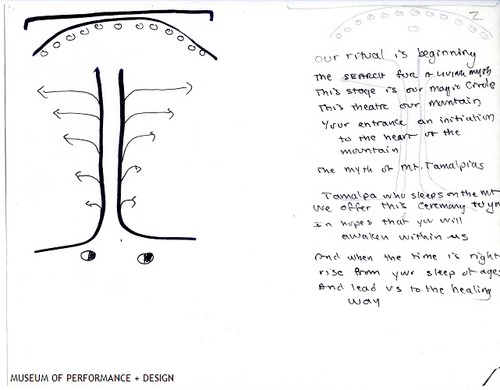 2
our ritual is beginning
The SEARCH for A Living myth
This stage is our magic Circle
This theatre our mountain
Your entrance an initiation
to the heart of the
mountain
The myth of Mt. Tamalpias
Tamalpa who sleeps on the mt
We offer this Ceremony to yo
In hopes that you will
awaken within us
And when the time is right
rise from your sleep of ages
And lead us to the healing
way
MUSEUM OF PERFORMANCE + DESIGN